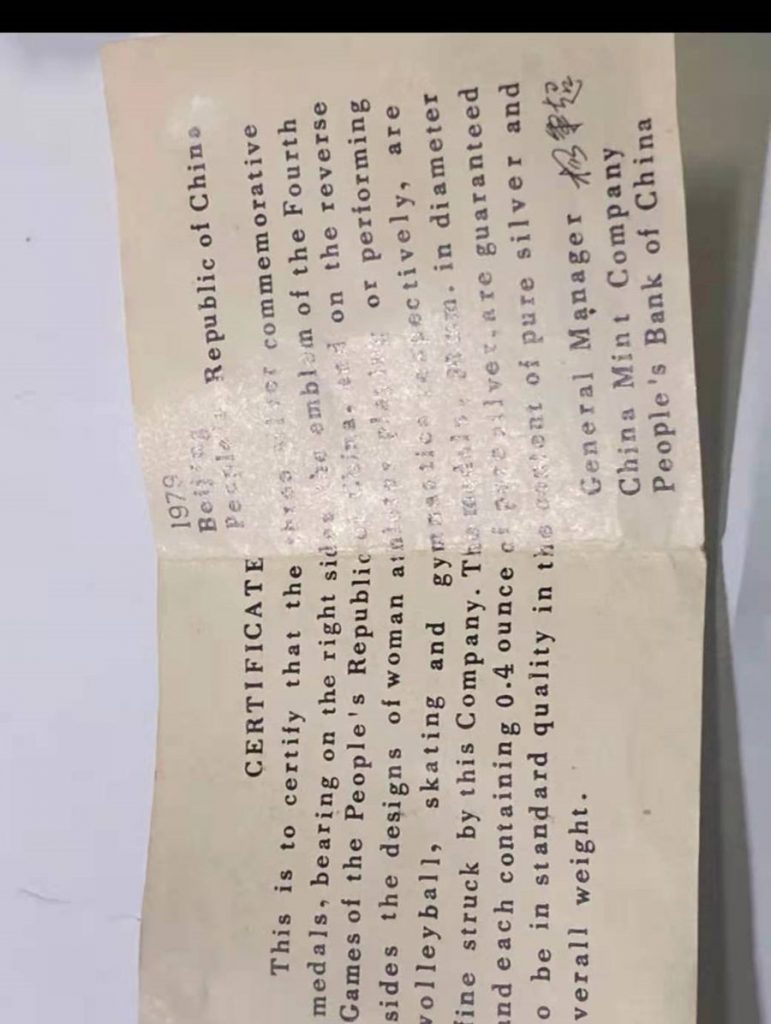 1979
Beijing
People's Republic of China
CERTIFICATE
This is to certify that the three silver commemorative
medals, bearing on the right sides the emblem of the Fourth
Games of the People's Republic of China, and on the reverse
sides the designs of woman athletes playing or performing
volleyball, skating and gymnastics respectively, are
fine struck by this Company. The medals, in diameter
and each containing 0.4 ounce of pure silver, are guaranteed
o be in standard quality in the content of pure silver and
verall weight.
General Manager 杨秉超
China Mint Company
People's Bank of China